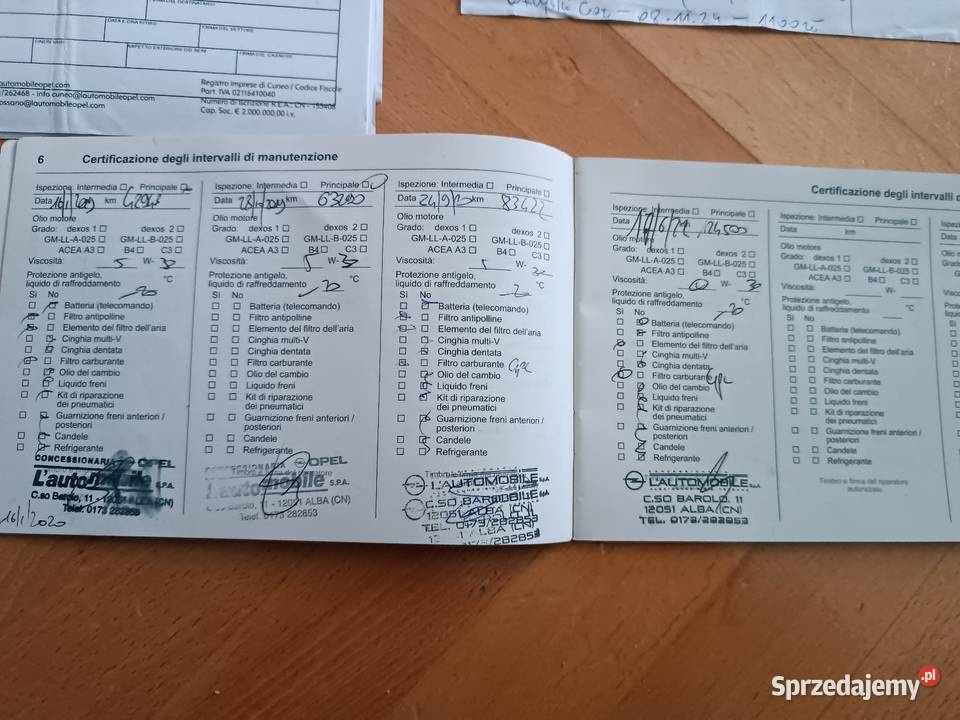 DATA E ORA RITIRO
FIRMA DEL VETTORE
ASPETTO ESTERIORE DEI BENI
FIRMA DEL CESSIONARIO
automobileopel.com
/262468 - info.cuneo@lautomobileopel.com
ossano@lautomobileopel.com
Registro Imprese di Cuneo / Codice Fiscale
Part. IVA 02116410040
Numero di Iscrizione R.E.A. CN - 155408
Cap. Soc. € 2.000.000,00 i.v.
02.11.24
6 Certificazione degli intervalli di manutenzione
Ispezione: Intermedia Principale
Data km 42943
Olio motore
Grado: dexos 1 dexos 2
GM-LL-A-025 GM-LL-B-025
ACEA A3 B4 C3
Viscosità: 5 W- 30
Protezione antigelo,
liquido di raffreddamento °C
Sì No
Batteria (telecomando)
Filtro antipolline
Elemento del filtro dell'aria
Cinghia multi-V
Cinghia dentata
Filtro carburante
Olio del cambio
Liquido freni
Kit di riparazione
dei pneumatici
Guarnizione freni anteriori /
posteriori
Candele
Refrigerante
CONCESSIONARIA OPEL
L'automobile S.P.A.
C.so Barolo, 11 - 12051 ALBA (CN)
Telef. 0173 282853
16/1/2020
Ispezione: Intermedia Principale
Data km 63200
Olio motore
Grado: dexos 1 dexos 2
GM-LL-A-025 GM-LL-B-025
ACEA A3 B4 C3
Viscosità: 5 W- 30
Protezione antigelo,
liquido di raffreddamento °C
Sì No
Batteria (telecomando)
Filtro antipolline
Elemento del filtro dell'aria
Cinghia multi-V
Cinghia dentata
Filtro carburante
Olio del cambio
Liquido freni
Kit di riparazione
dei pneumatici
Guarnizione freni anteriori /
posteriori
Candele
Refrigerante
CONCESSIONARIA OPEL
L'automobile S.P.A.
12051 ALBA (CN)
Telef. 0173 282853
Ispezione: Intermedia Principale
Data 24/9/20 km 83422
Olio motore
Grado: dexos 1 dexos 2
GM-LL-A-025 GM-LL-B-025
ACEA A3 B4 C3
Viscosità: 5 W- 30
Protezione antigelo,
liquido di raffreddamento °C
Sì No
Batteria (telecomando)
Filtro antipolline
Elemento del filtro dell'aria
Cinghia multi-V
Cinghia dentata
Filtro carburante
Olio del cambio
Liquido freni
Kit di riparazione
dei pneumatici
Guarnizione freni anteriori /
posteriori
Candele
Refrigerante
L'AUTOMOBILE S.p.A.
C.SO BAROLO, 11
12051 ALBA (CN)
TEL. 0173/282853
Certificazione degli intervalli d
Ispezione: Intermedia Principale
Data
Olio motore
Grado: dexos 1 dexos 2
GM-LL-A-025 GM-LL-B-025
ACEA A3 B4 C3
Viscosità: 0 W- 30
Protezione antigelo,
liquido di raffreddamento °C
Sì No
Batteria (telecomando)
Filtro antipolline
Elemento del filtro dell'aria
Cinghia multi-V
Cinghia dentata
Filtro carburante
Olio del cambio
Liquido freni
Kit di riparazione
dei pneumatici
Guarnizione freni anteriori /
posteriori
Candele
Refrigerante
L'AUTOMOBILE S.p.A.
C.SO BAROLO, 11
12051 ALBA (CN)
TEL. 0173/282853
Ispezione: Intermedia Principale
Data km
Olio motore
Grado: dexos 1 dexos 2
GM-LL-A-025 GM-LL-B-025
ACEA A3 B4 C3
Viscosità: W-
Protezione antigelo,
liquido di raffreddamento °C
Sì No
Batteria (telecomando)
Filtro antipolline
Elemento del filtro dell'aria
Cinghia multi-V
Cinghia dentata
Filtro carburante
Olio del cambio
Liquido freni
Kit di riparazione
dei pneumatici
Guarnizione freni anteriori /
posteriori
Candele
Refrigerante
Timbro e firma del riparatore
autorizzato
Sprzedajemy.pl